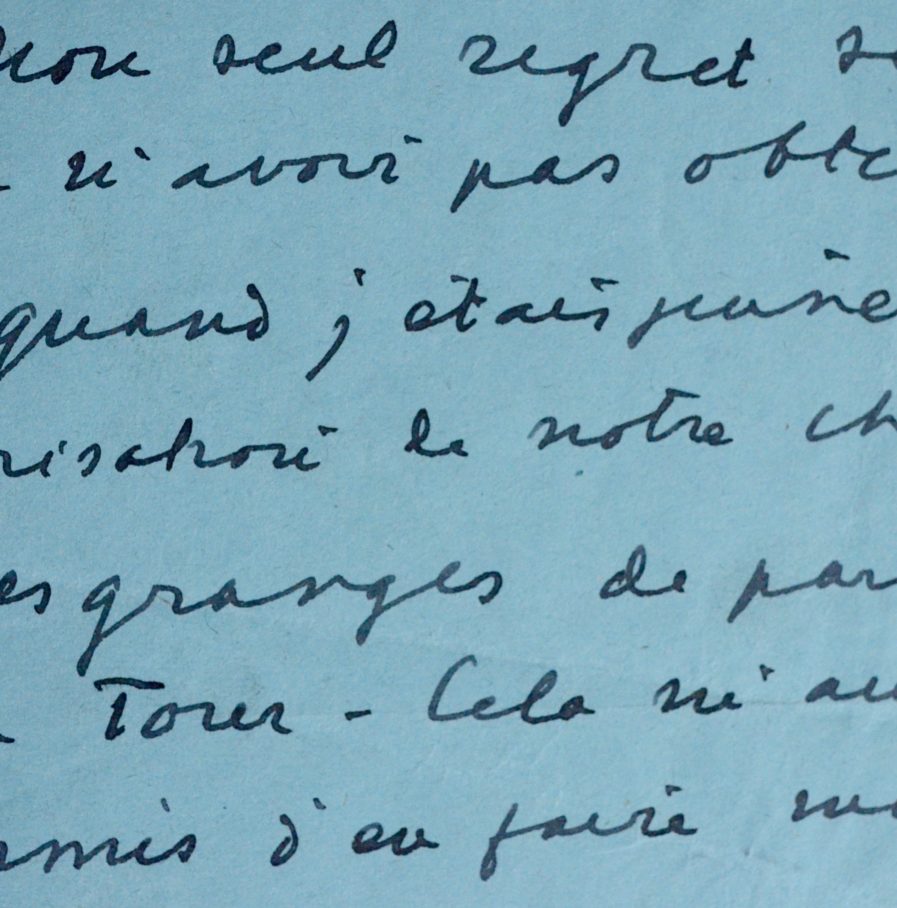 Mon seul regret se
n'avoir pas obte
quand j'étais jeune
risation de notre ch
es granges de par
Torer - Cela m'au
rmis d'en faire